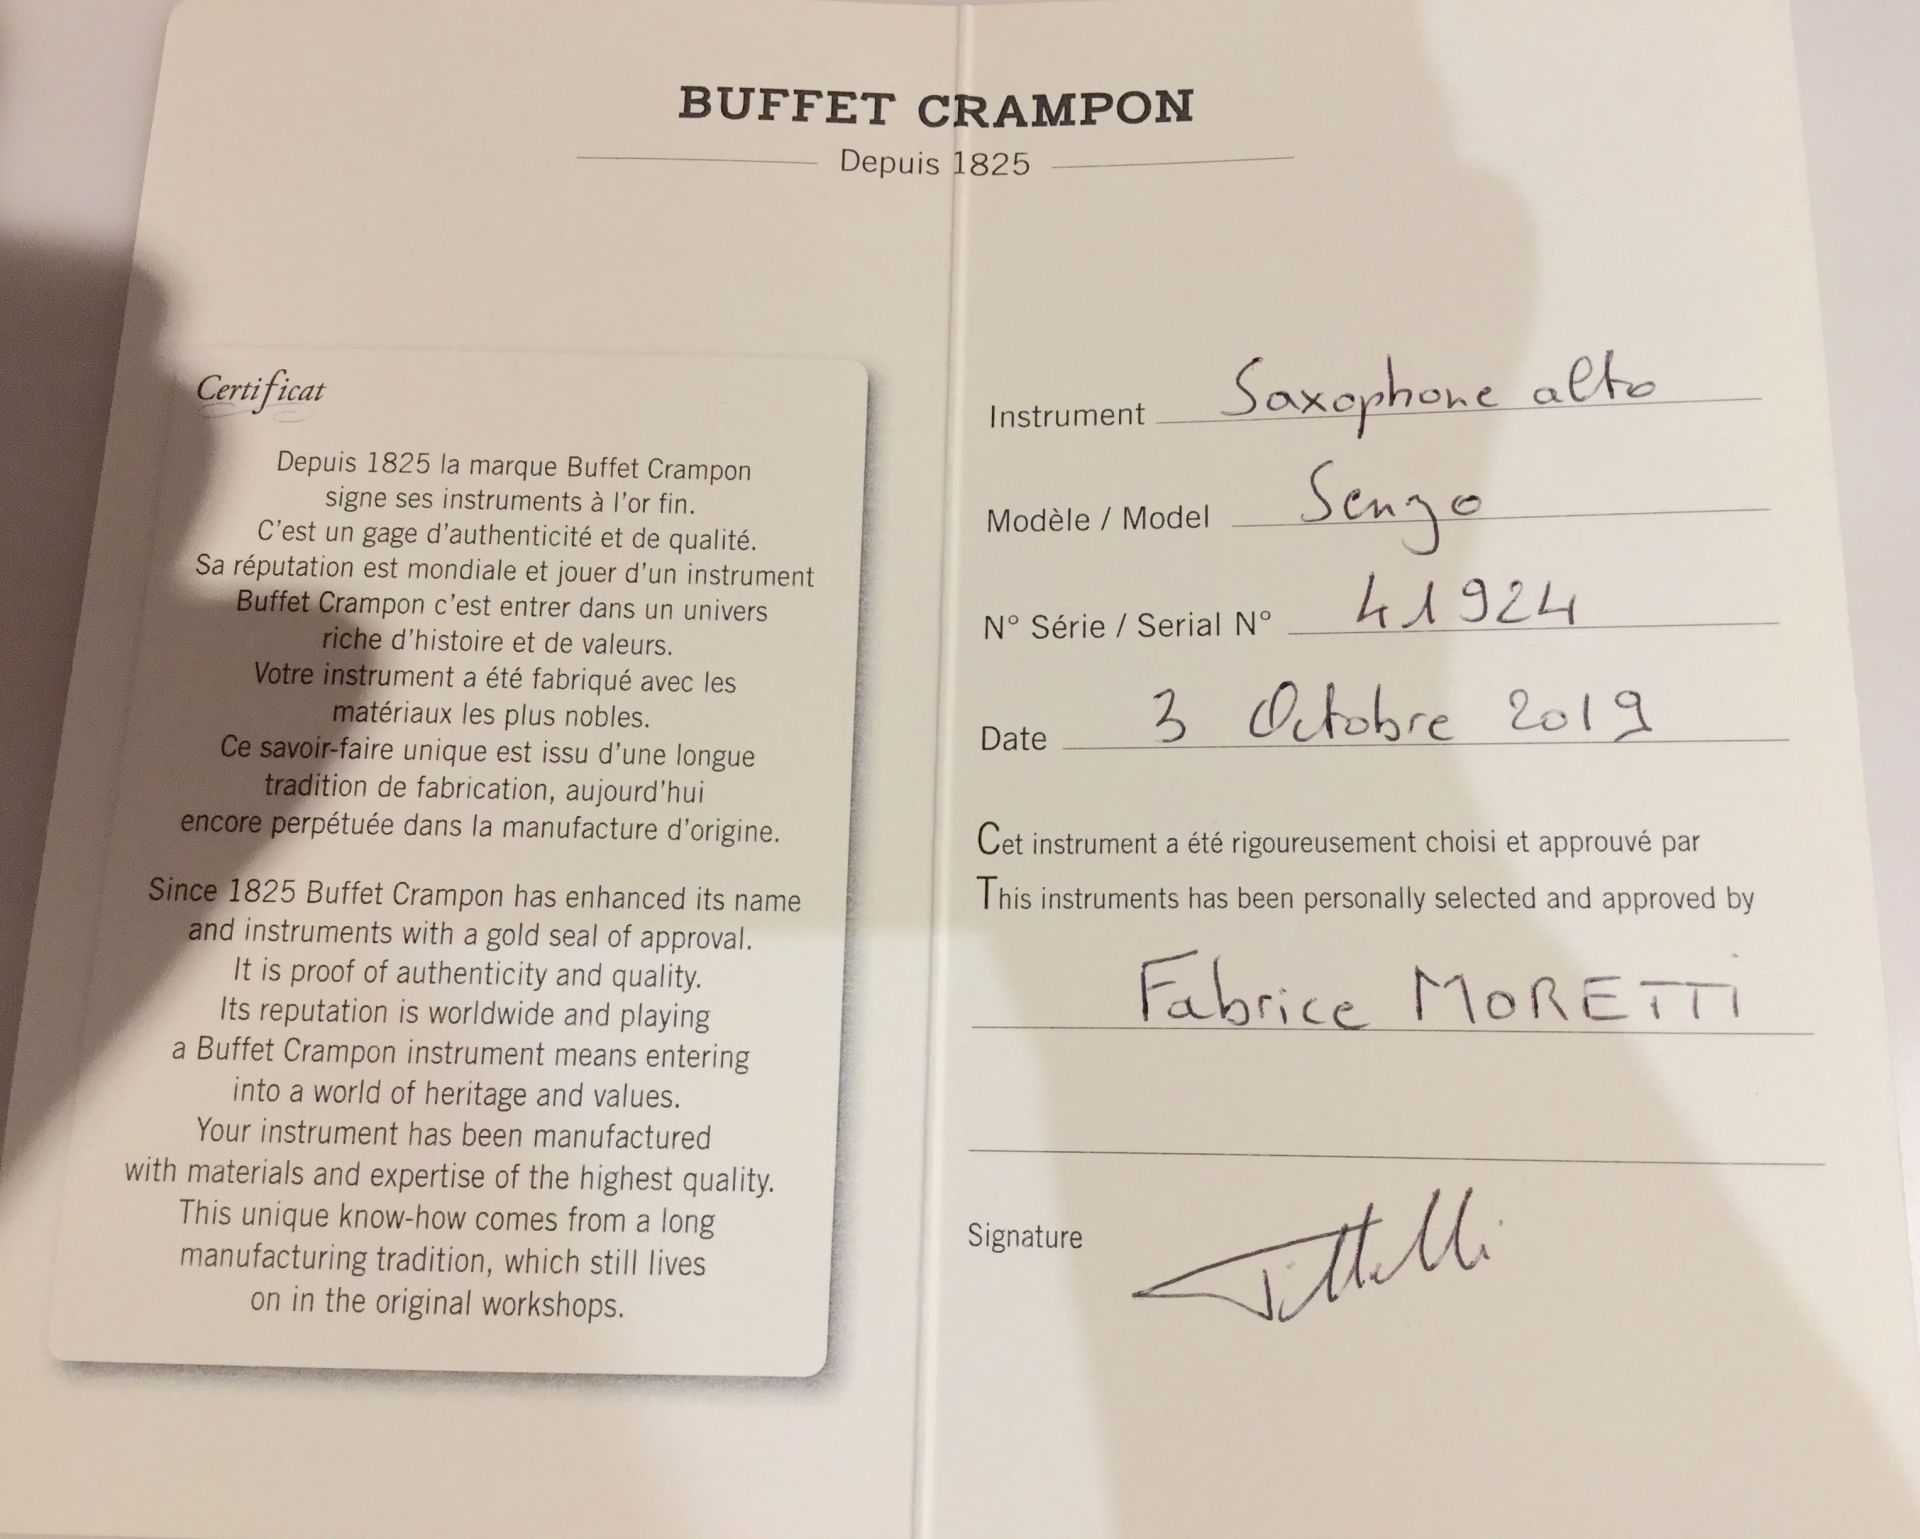 BUFFET CRAMPON
Depuis 1825
Certificat
Depuis 1825 la marque Buffet Crampon
signe ses instruments à l'or fin.
C'est un gage d'authenticité et de qualité.
Sa réputation est mondiale et jouer d'un instrument
Buffet Crampon c'est entrer dans un univers
riche d'histoire et de valeurs.
Votre instrument a été fabriqué avec les
matériaux les plus nobles.
Ce savoir-faire unique est issu d'une longue
tradition de fabrication, aujourd'hui
encore perpétuée dans la manufacture d'origine.
Since 1825 Buffet Crampon has enhanced its name
and instruments with a gold seal of approval.
It is proof of authenticity and quality.
Its reputation is worldwide and playing
a Buffet Crampon instrument means entering
into a world of heritage and values.
Your instrument has been manufactured
with materials and expertise of the highest quality.
This unique know-how comes from a long
manufacturing tradition, which still lives
on in the original workshops.
Instrument Saxophone alto
Modèle / Model Senzo
N° Série / Serial N° 41924
Date 3 Octobre 2019
Cet instrument a été rigoureusement choisi et approuvé par
This instruments has been personally selected and approved by
Fabrice MORETTI
Signature